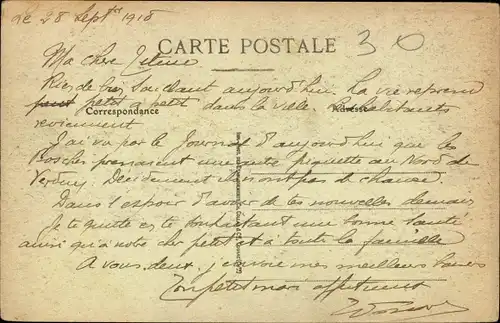 Le 28 Septbre 1918
CARTE POSTALE
30
Ma chere
Rien de bien aujourd'hui. La vie reprend
petit a petit dans la ville. habitants
Correspondance
reviennent
J'ai vu par le Journal d'aujourd'hui que les
Boches prennent une autre piquette au Nord de
Verdun. Decidement ils n'ont pas de chance.
Dans l'espoir d'avoir de tes nouvelles demain
Je te quitte en te souhaitant une bonne santé
ainsi qu'à notre cher petit et à toute la famille
A vous deux j'envoie mes meilleurs baisers
Ton petit mari affectionné